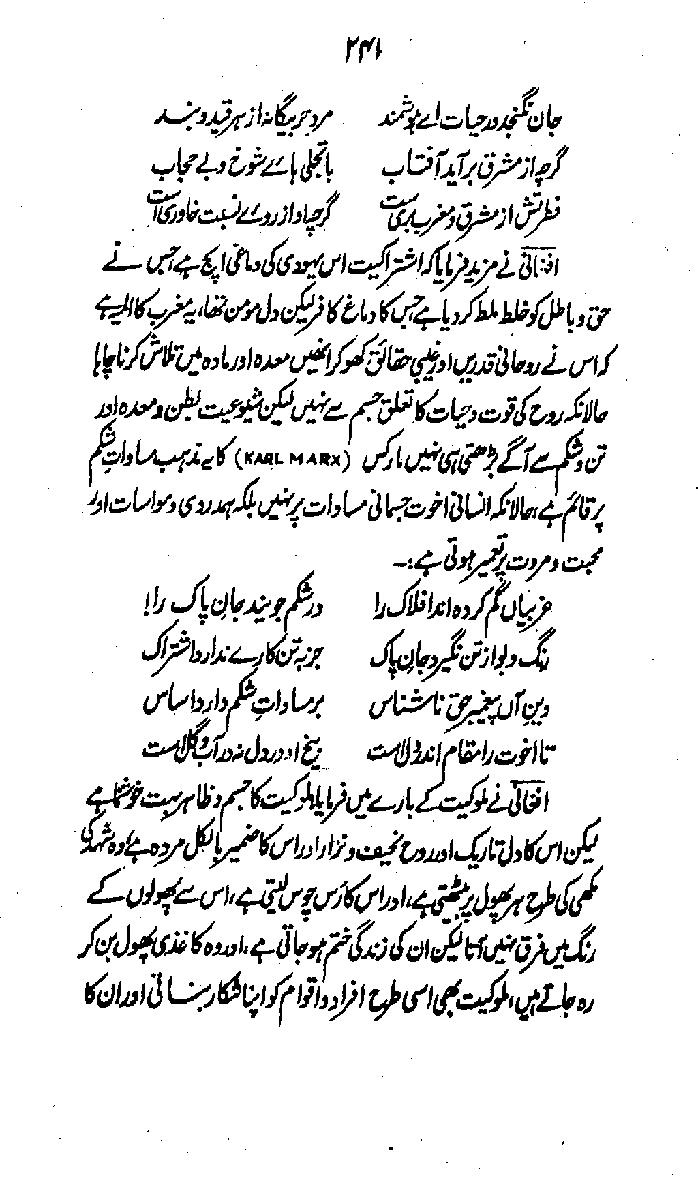 ۲۴۱
جان نگنجد در حیات اے ہوشمند مرد حر بیگانہ از ہر قید و بند
گرچہ از مشرق برآید آفتاب با تجلی ہائے شوخ و بے حجاب
فطرتش از مشرق و مغرب بری است گرچہ او از روے نسبت خاوری است
افغانی نے مزید فرمایا کہ اشتراکیت اس یہودی کی دماغی اپج ہے جس نے
حق و باطل کو خلط ملط کر دیا ہے جس کا دماغ کافر لیکن دل مومن تھا، یہ مغرب کا المیہ ہے
کہ اس نے روحانی قدریں اور غیبی حقائق کھو کر انھیں معدہ اور مادہ میں تلاش کرنا چاہا
حالانکہ روح کی قوت و حیات کا تعلق جسم سے نہیں لیکن شیوعیت بطن و معدہ اور
تن و شکم سے آگے بڑھتی ہی نہیں مارکس (KARL MARX) کا یہ مذہب مساوات شکم
پر قائم ہے، حالانکہ انسانی اخوت جسمانی مساوات پر نہیں بلکہ ہمدردی و مواسات اور
محبت و مروت پر تعمیر ہوتی ہے:۔
غربیاں گم کردہ اند افلاک را در شکم جویند جان پاک را!
رنگ و بو از تن نگیرد جان پاک جز بہ تن کارے ندارد اشتراک
دین آں پیغمبر حق ناشناس بر مساوات شکم دارد اساس
تا اخوت را مقام اندر دل است بیخ او در دل نہ در آب و گل است
افغانی نے ملوکیت کے بارے میں فرمایا، ملوکیت کا جسم و ظاہر بہت خوشنما ہے
لیکن اس کا دل تاریک اور روح نحیف و نزار اور اس کا ضمیر بالکل مردہ ہے، وہ شہد کی
مکھی کی طرح ہر پھول پر بیٹھتی ہے، اور اس کا رس چوس لیتی ہے، اس سے پھولوں کے
رنگ میں فرق نہیں آتا لیکن ان کی زندگی ختم ہو جاتی ہے، اور وہ کاغذی پھول بن کر
رہ جاتے ہیں، ملوکیت بھی اسی طرح افراد و اقوام کو اپنا شکار بناتی اور ان کا